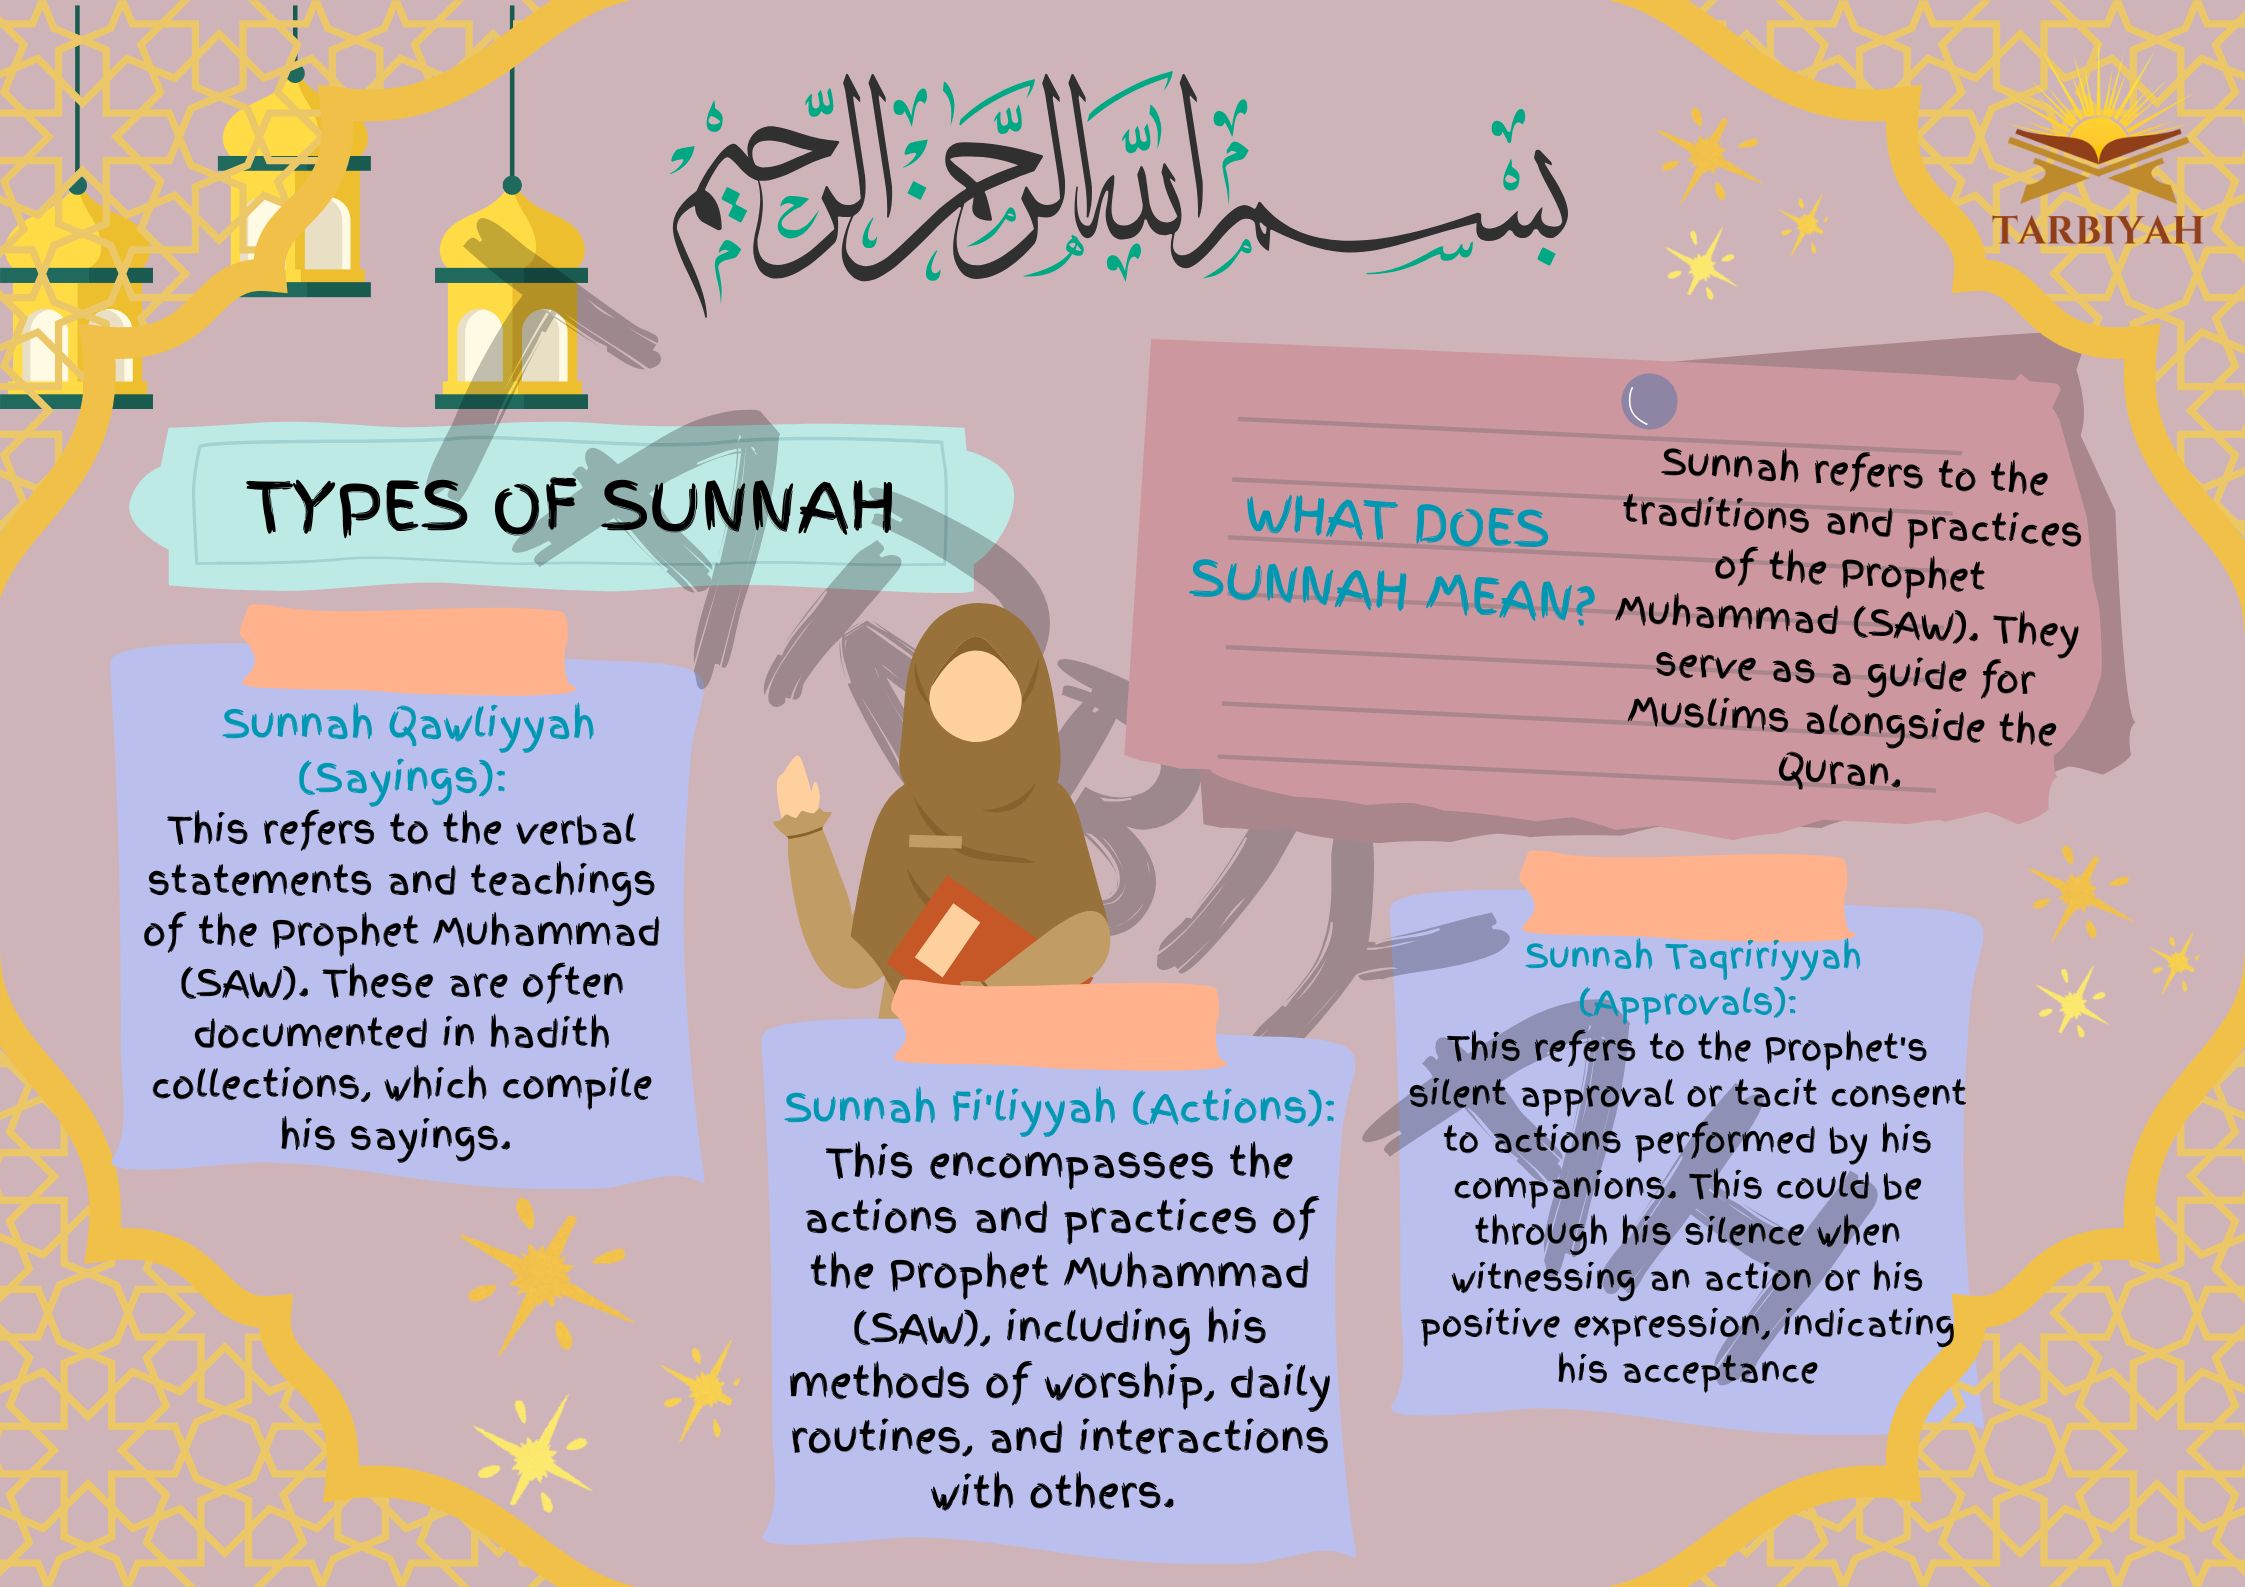 بسم الله الرحمن الرحيم
TARBIYAH
WHAT DOES
SUNNAH MEAN?
Sunnah refers to the
traditions and practices
of the Prophet
Muhammad (SAW). They
serve as a guide for
Muslims alongside the
Quran.
TYPES OF SUNNAH
Sunnah Qawliyyah
(Sayings):
This refers to the verbal
statements and teachings
of the Prophet Muhammad
(SAW). These are often
documented in hadith
collections, which compile
his sayings.
Sunnah Fi'liyyah (Actions):
This encompasses the
actions and practices of
the Prophet Muhammad
(SAW), including his
methods of worship, daily
routines, and interactions
with others.
Sunnah Taqririyyah
(Approvals):
This refers to the Prophet's
silent approval or tacit consent
to actions performed by his
companions. This could be
through his silence when
witnessing an action or his
positive expression, indicating
his acceptance
TARBIYAH